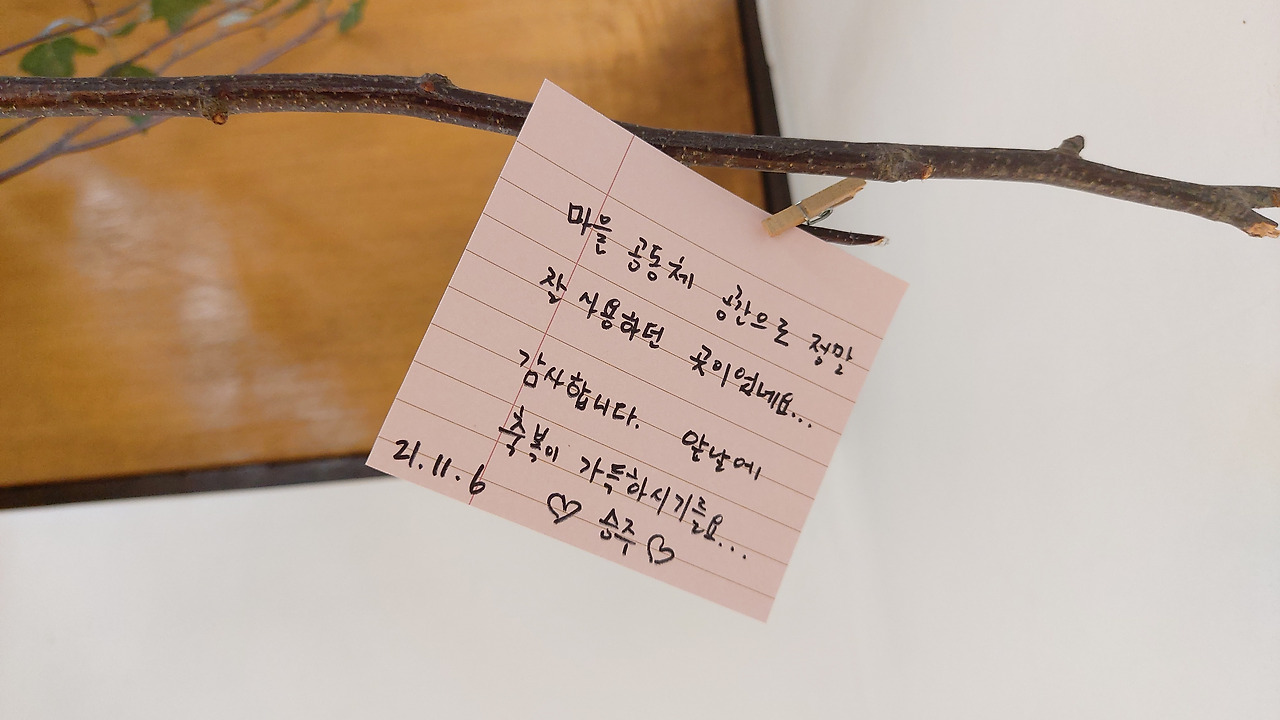 마을 공동체 공간으로 정말
잘 사용하던 곳이었네요...
감사합니다. 앞날에
축복이 가득하시기를요...
21.11.6
♡ 승주 ♡